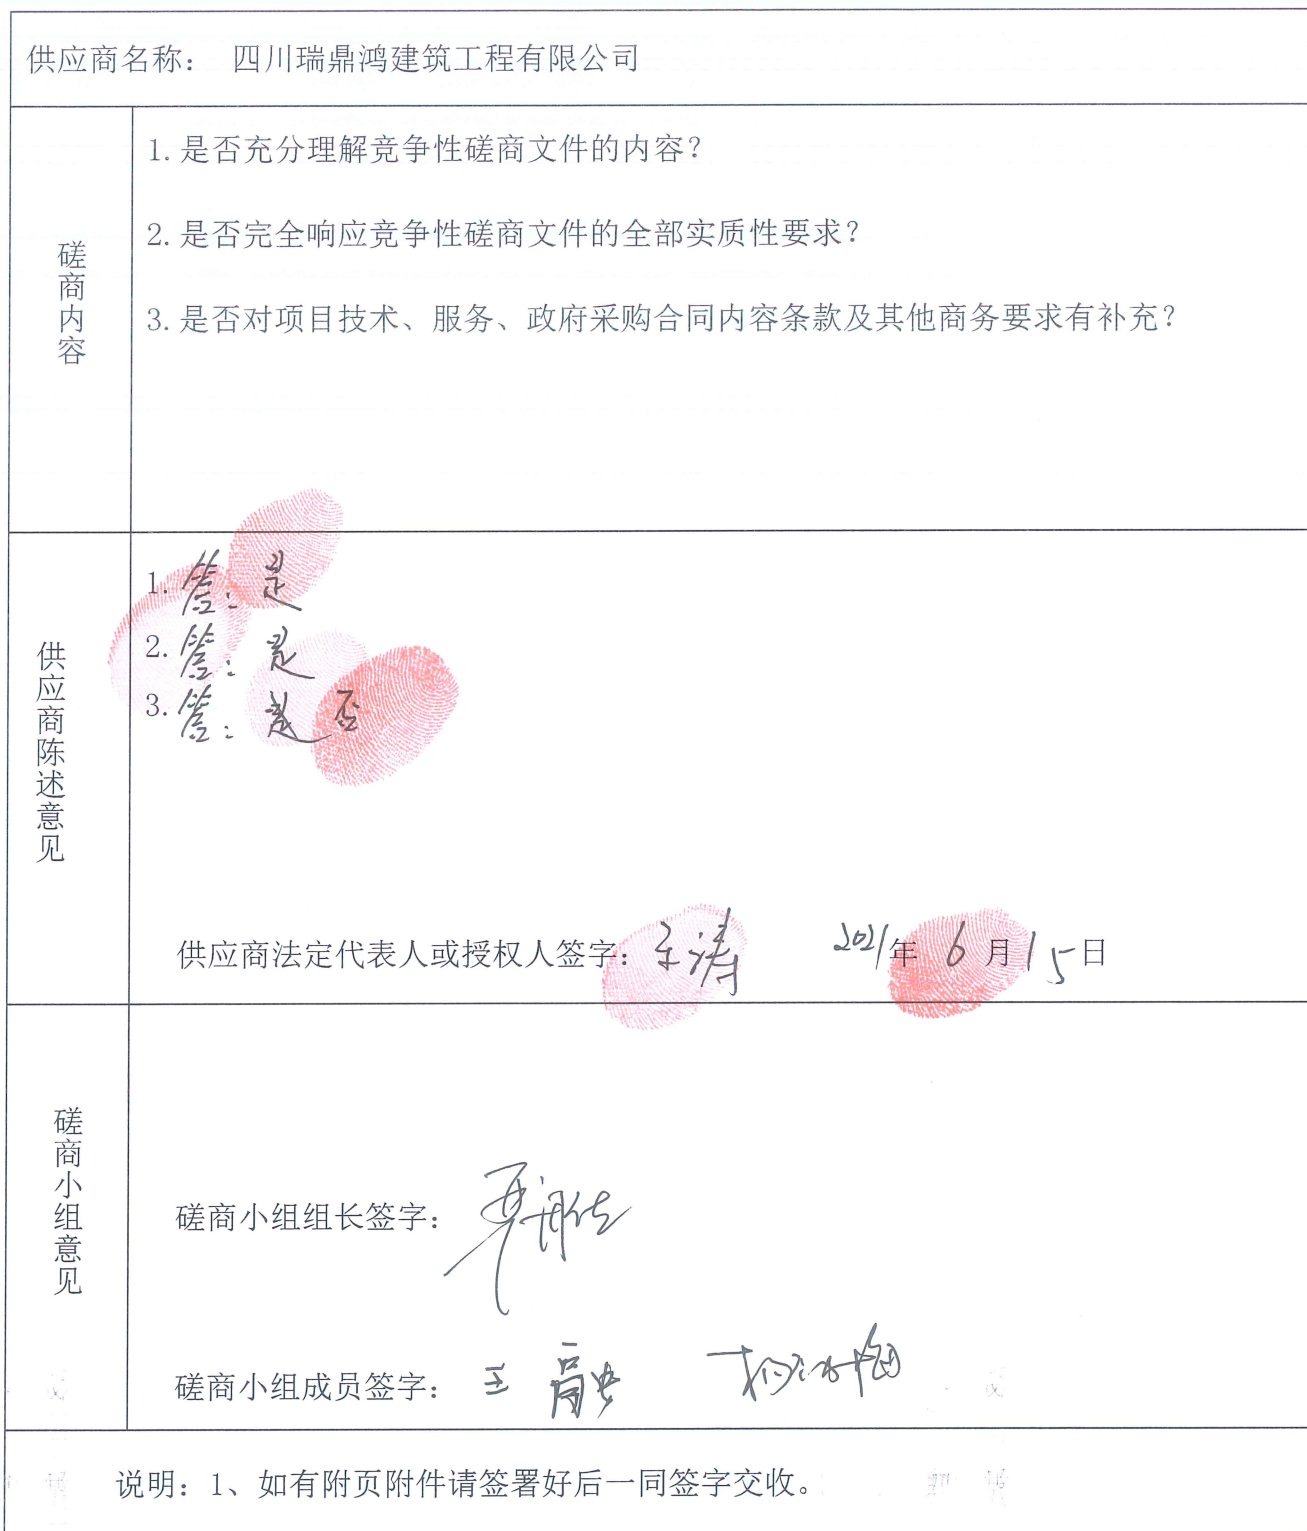 供应商名称： 四川瑞鼎鸿建筑工程有限公司
磋商内容
1.是否充分理解竞争性磋商文件的内容？
2.是否完全响应竞争性磋商文件的全部实质性要求？
3.是否对项目技术、服务、政府采购合同内容条款及其他商务要求有补充？
供应商陈述意见
1.答：是
2.答：是
3.答： 否
供应商法定代表人或授权人签字： 涛 2021年 6 月 15 日
磋商小组意见
磋商小组组长签字：
磋商小组成员签字： 王融
说明：1、如有附页附件请签署好后一同签字交收。